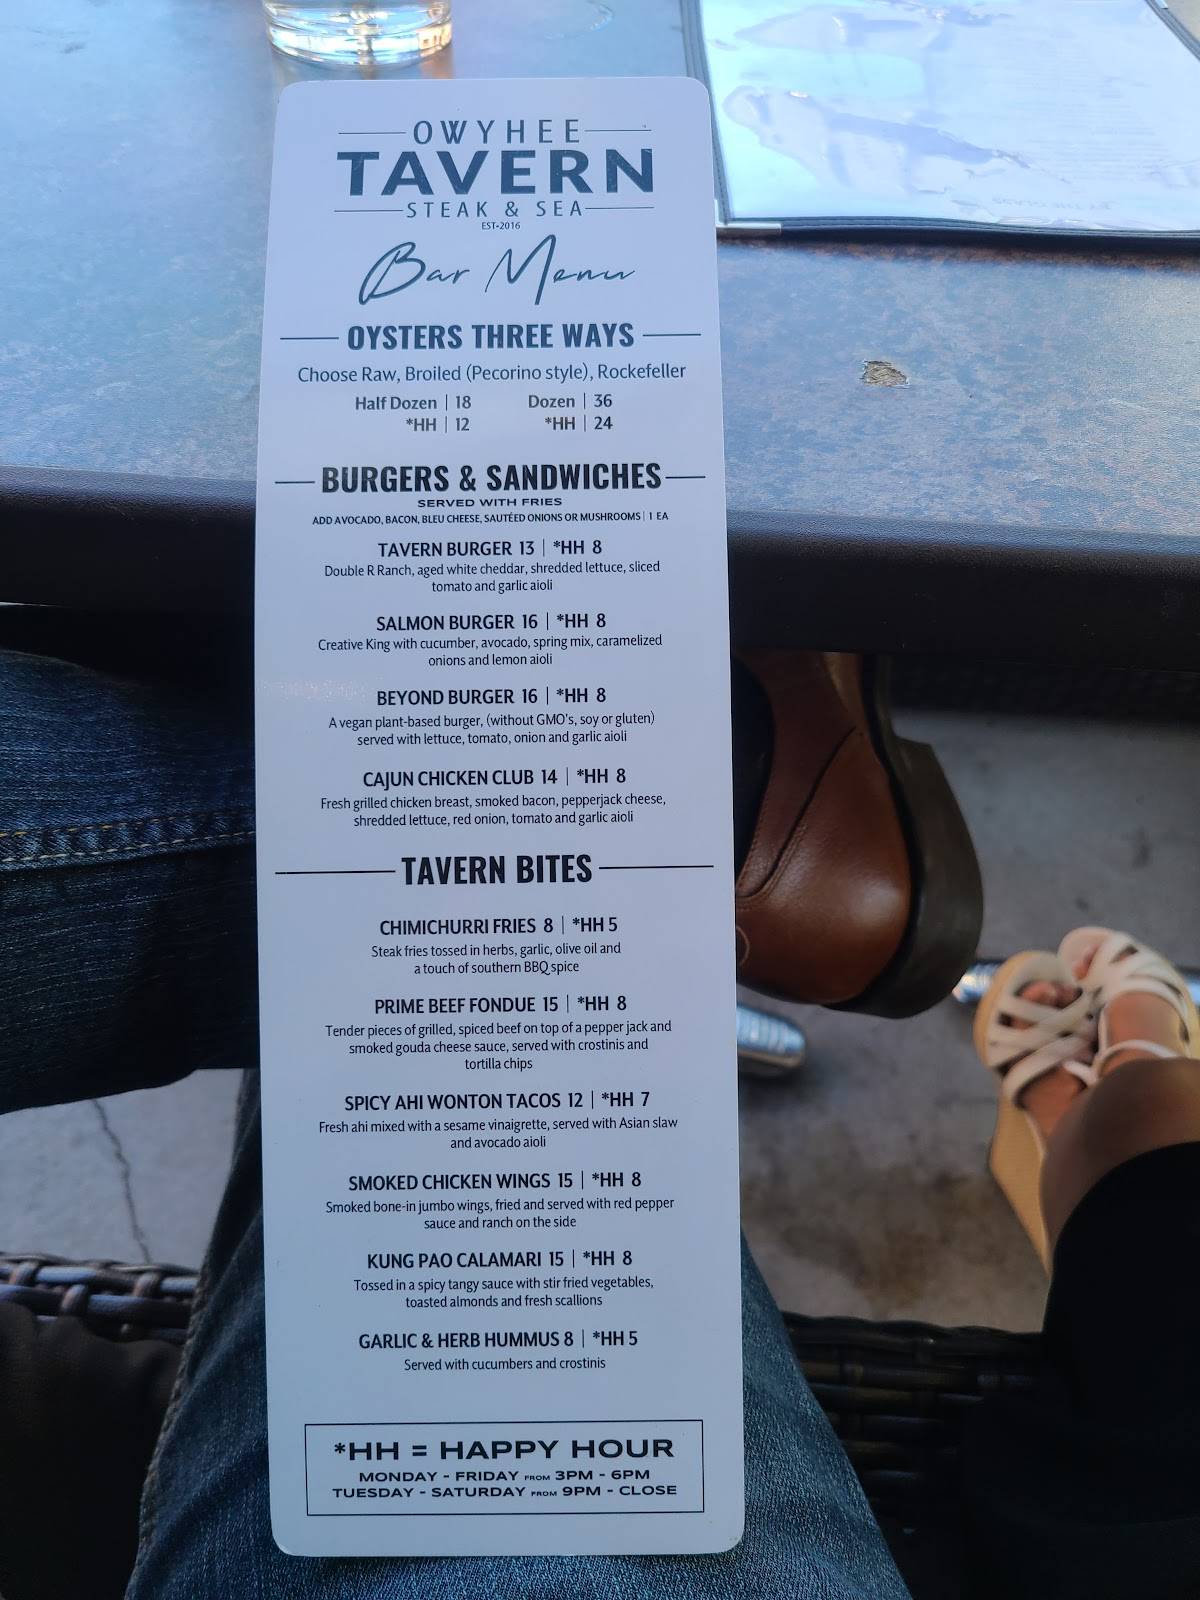 OWYHEE
TAVERN
STEAK & SEA
EST•2016
Bar Menu
OYSTERS THREE WAYS
Choose Raw, Broiled (Pecorino style), Rockefeller
Half Dozen | 18 Dozen | 36
*HH | 12 *HH | 24
BURGERS & SANDWICHES
SERVED WITH FRIES
ADD AVOCADO, BACON, BLEU CHEESE, SAUTÉED ONIONS OR MUSHROOMS | 1 EA
TAVERN BURGER 13 | *HH 8
Double R Ranch, aged white cheddar, shredded lettuce, sliced
tomato and garlic aioli
SALMON BURGER 16 | *HH 8
Creative King with cucumber, avocado, spring mix, caramelized
onions and lemon aioli
BEYOND BURGER 16 | *HH 8
A vegan plant-based burger, (without GMO's, soy or gluten)
served with lettuce, tomato, onion and garlic aioli
CAJUN CHICKEN CLUB 14 | *HH 8
Fresh grilled chicken breast, smoked bacon, pepperjack cheese,
shredded lettuce, red onion, tomato and garlic aioli
TAVERN BITES
CHIMICHURRI FRIES 8 | *HH 5
Steak fries tossed in herbs, garlic, olive oil and
a touch of southern BBQ spice
PRIME BEEF FONDUE 15 | *HH 8
Tender pieces of grilled, spiced beef on top of a pepper jack and
smoked gouda cheese sauce, served with crostinis and
tortilla chips
SPICY AHI WONTON TACOS 12 | *HH 7
Fresh ahi mixed with a sesame vinaigrette, served with Asian slaw
and avocado aioli
SMOKED CHICKEN WINGS 15 | *HH 8
Smoked bone-in jumbo wings, fried and served with red pepper
sauce and ranch on the side
KUNG PAO CALAMARI 15 | *HH 8
Tossed in a spicy tangy sauce with stir fried vegetables,
toasted almonds and fresh scallions
GARLIC & HERB HUMMUS 8 | *HH 5
Served with cucumbers and crostinis
*HH = HAPPY HOUR
MONDAY - FRIDAY FROM 3PM - 6PM
TUESDAY - SATURDAY FROM 9PM - CLOSE
BY THE GLASS